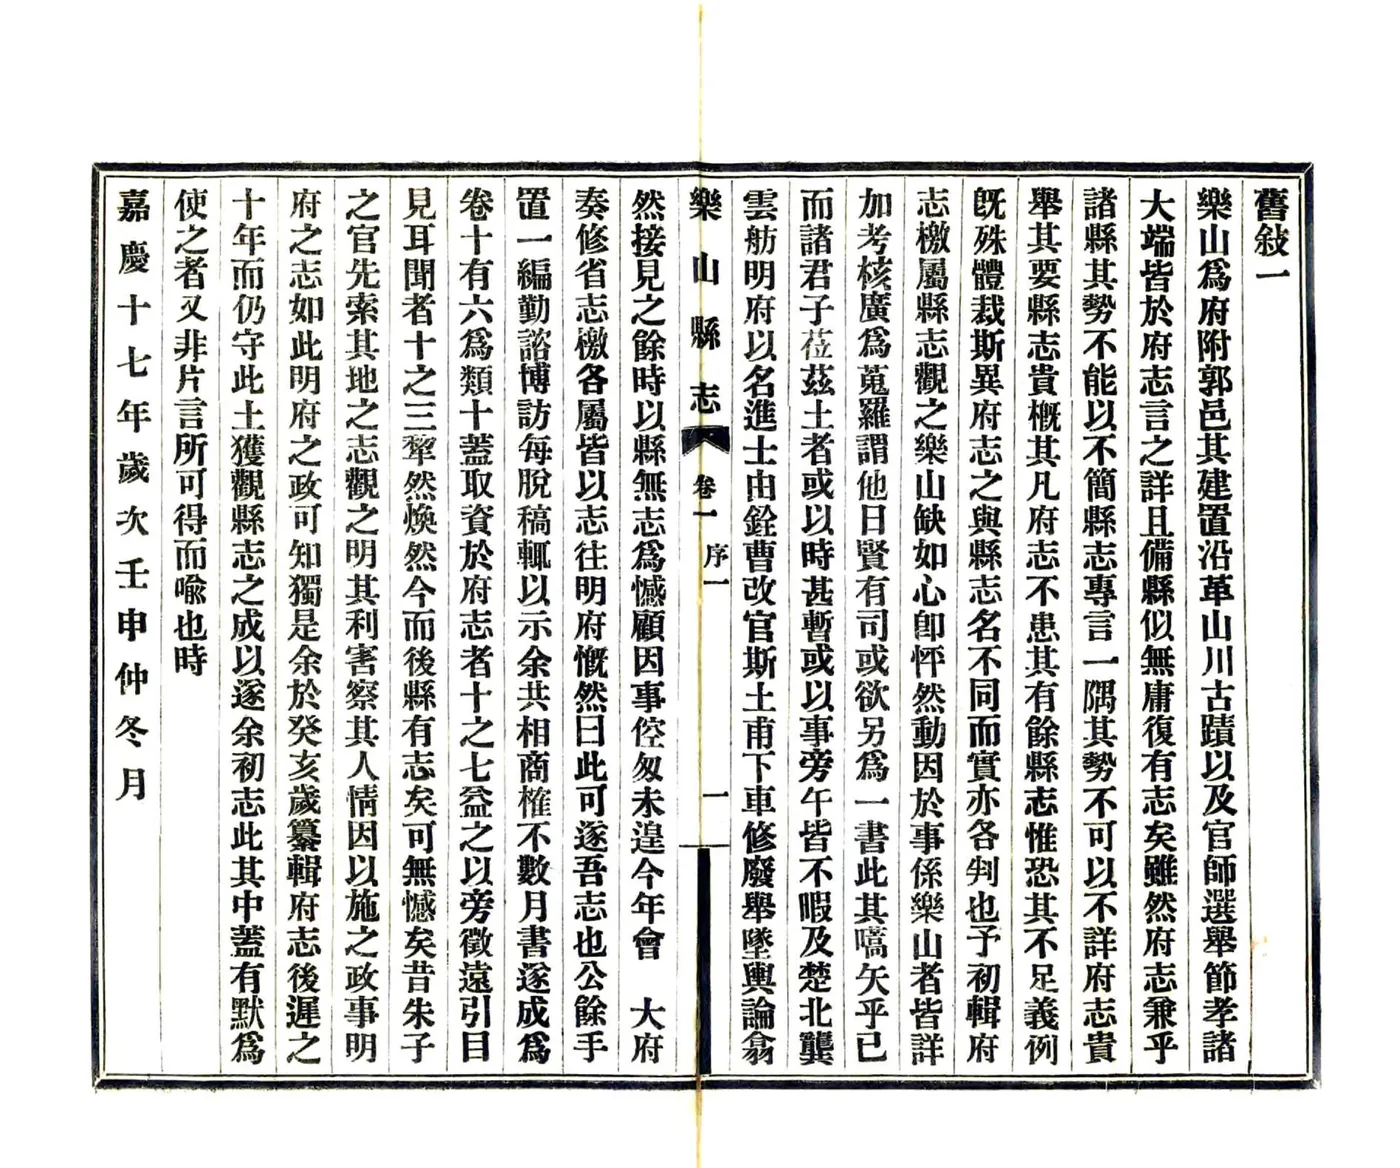 舊敍一
樂山爲府附郭邑其建置沿革山川古蹟以及官師選舉節孝諸
大端皆於府志言之詳且備縣似無庸復有志矣雖然府志兼乎
諸縣其勢不能以不簡縣志專言一隅其勢不可以不詳府志貴
舉其要縣志貴槪其凡府志不患其有餘縣志惟恐其不足義例
旣殊體裁斯異府志之與縣志名不同而實亦各判也予初輯府
志檄屬縣志觀之樂山缺如心卽怦然動因於事係樂山者皆詳
加考核廣爲蒐羅謂他日賢有司或欲另爲一書此其嚆矢乎已
而諸君子莅茲土者或以時甚暫或以事旁午皆不暇及楚北龔
雲舫明府以名進士由銓曹改官斯土甫下車修廢舉墜輿論翕
樂山縣志 卷一 序一 一
然接見之餘時以縣無志爲憾顧因事倥匆未遑今年會 大府
奏修省志檄各屬皆以志往明府慨然曰此可遂吾志也公餘手
置一編勤諮博訪每脫稿輒以示余共相商榷不數月書遂成爲
卷十有六爲類十蓋取資於府志者十之七益之以旁徵遠引目
見耳聞者十之三犂然煥然今而後縣有志矣可無憾矣昔朱子
之官先索其地之志觀之明其利害察其人情因以施之政事明
府之志如此明府之政可知獨是余於癸亥歲纂輯府志後遲之
十年而仍守此土獲觀縣志之成以遂余初志此其中蓋有默爲
使之者又非片言所可得而喩也時
嘉慶十七年歲次壬申仲冬月